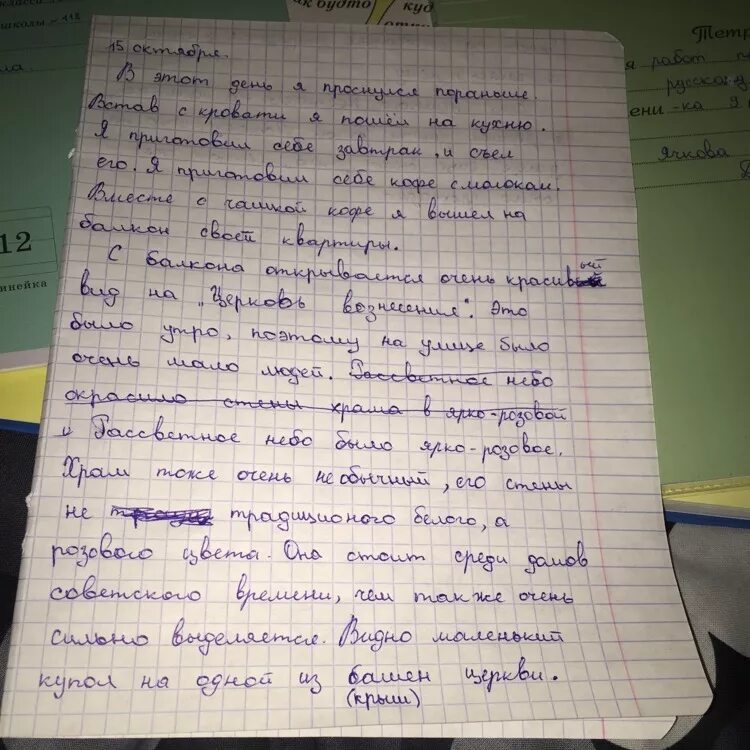 класса
школы - 112
ла.
12
инейка
как будто
куд
Тетр
я работ п
русском у
ени -ка 9
Ячкова
15 октября.
В этот день я проснулся пораньше.
Встав с кровати я пошёл на кухню.
Я приготовил себе завтрак и съел
его. Я приготовил себе кофе с молокам.
Вместе с чашкой кофе я вышел на
балкон своей квартиры.
С балкона открывается очень красивый
вид на "Церковь вознесения". Это
было утро, поэтому на улице было
очень мало людей. Рассветное небо
окрасило стены храма в ярко-розовой
и Рассветное небо было ярко-розовое.
Храм тоже очень необычный, его стены
не традиционого белого, а
розового цвета. Она стоит среди дамов
советского времени, чем так же очень
сильно выделяется. Видно маленький
купол на одной из башен церкви.
(крыш)